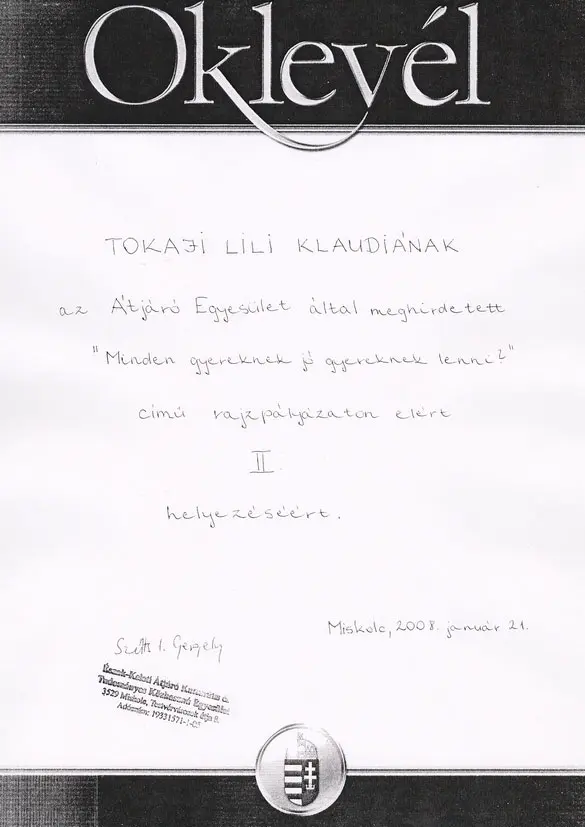 Oklevél
TOKAJI LILI KLAUDIÁNAK
az Átjáró Egyesület által meghirdetett
"Minden gyereknek jó gyereknek lenni?"
című rajzpályázaton elért
II.
helyezéséért.
Miskolc, 2008. január 21.
Gergely
Észak-Keleti Átjáró Kulturális és
Tudományos Közhasznú Egyesület
3529 Miskolc, Testvérvárosok útja 8.
Adószám: 19331571-1-05